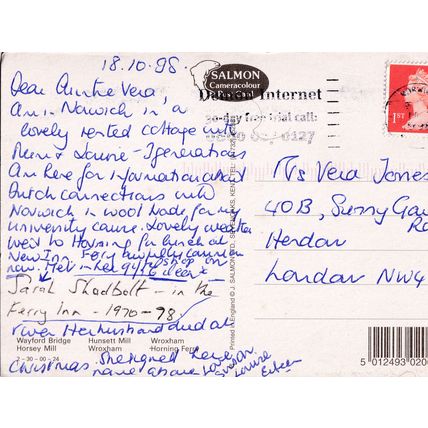 18.10.98.
SALMON
Cameracolour
Post Card
Demon Internet
30-day free trial call:
0127
1ST
Dear Auntie Vera,
Am in Norwich in a
lovely rented cottage with
Mum & Louise - 3 generations
Am here for information about
Dutch connections with
Norwich in wool trade for my
university course. Lovely weather
went to Horning for lunch at
New Inn. Ferry
now. Met in
Sarah Shadbolt - in the
Ferry Inn - 1970-98
river. Her husband died at
Christmas. She signed here
name above Love
Susan
Louise
Eileen
Ms Vera Jones
40B, Sunny Gardens
Rd
Hendon
London NW4
Printed in England © J. SALMON LTD. SEVENOAKS, KENT, TEL
Wayford Bridge Hunsett Mill Wroxham
Horsey Mill Wroxham Horning Ferry
2-30-00-24
5 012493 020